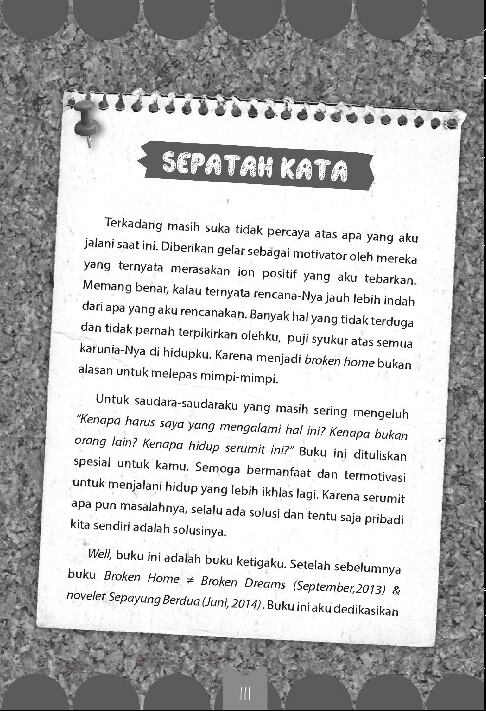 SEPATAH KATA
Terkadang masih suka tidak percaya atas apa yang aku
jalani saat ini. Diberikan gelar sebagai motivator oleh mereka
yang ternyata merasakan ion positif yang aku tebarkan.
Memang benar, kalau ternyata rencana-Nya jauh lebih indah
dari apa yang aku rencanakan. Banyak hal yang tidak terduga
dan tidak pernah terpikirkan olehku, puji syukur atas semua
karunia-Nya di hidupku. Karena menjadi broken home bukan
alasan untuk melepas mimpi-mimpi.
Untuk saudara-saudaraku yang masih sering mengeluh
"Kenapa harus saya yang mengalami hal ini? Kenapa bukan
orang lain? Kenapa hidup serumit ini?" Buku ini dituliskan
spesial untuk kamu. Semoga bermanfaat dan termotivasi
untuk menjalani hidup yang lebih ikhlas lagi. Karena serumit
apa pun masalahnya, selalu ada solusi dan tentu saja pribadi
kita sendiri adalah solusinya.
Well, buku ini adalah buku ketigaku. Setelah sebelumnya
buku Broken Home ≠ Broken Dreams (September,2013) &
novelet Sepayung Berdua (Juni, 2014). Buku ini aku dedikasikan
III